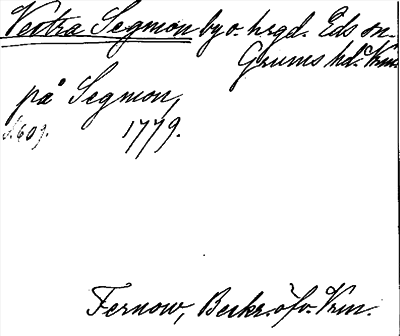 Vestra Segmon by o. hrgd. Eds sn.
Grums hd. Vrm.
på Segmon,
s. 609. 1779.
Fernow, Beskr. öfv. Vrm.